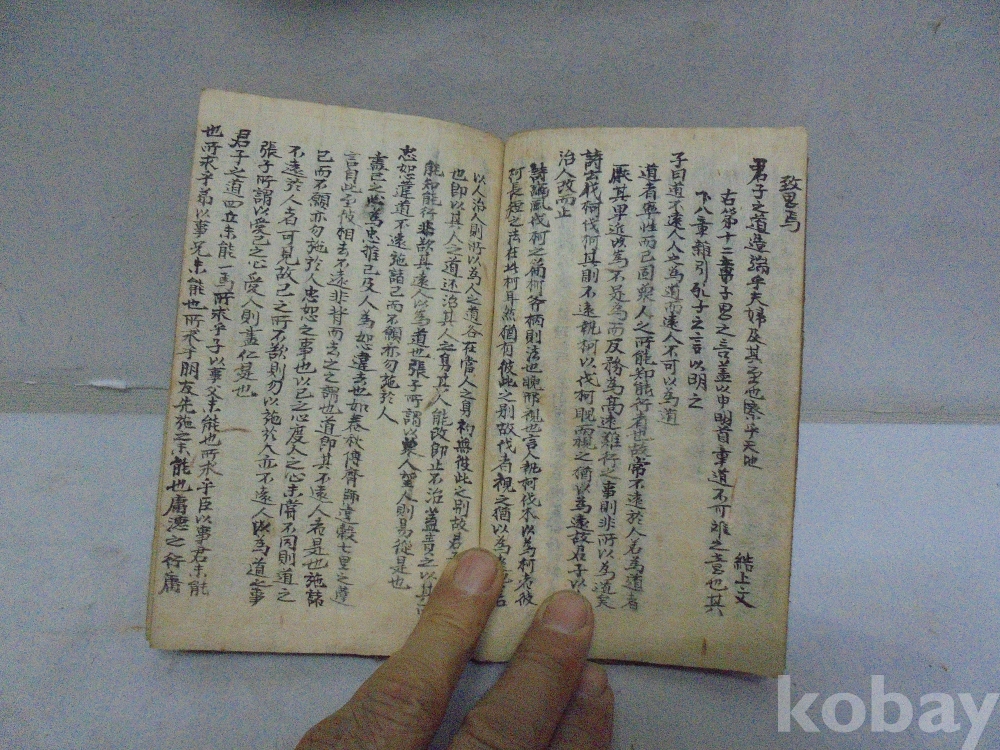 致思焉
君子之道造端乎夫婦及其至也察乎天地
結上文
右第十二章子思之言盖以申明首章道不可離之意也其
下八章雜引孔子之言以明之
子曰道不遠人人之為道而遠人不可以為道
道者率性而已固衆人之所能知能行者也故常不遠於人若為道者
厭其卑近以為不足為而反務為高遠難行之事則非所以為道矣
詩云伐柯伐柯其則不遠執柯以伐柯睨而視之猶以為遠故君子以
治人改而止
詩豳風伐柯之篇柯斧柄則法也睨邪視也言人執柯伐木以為柯者彼
柯長短之法在此柯耳然猶有彼此之别故伐者視之猶以為
以人治人則所以為人之道各在當人之身初無彼此之别故君
也即以其人之道还治其人之身其人能改即止不治盖責之以其
能知能行非欲其遠人以為道也張子所謂以衆人望人則易從是也
忠恕違道不遠施諸己而不願亦勿施於人
盡己之心為忠推己及人為恕違去也如春秋傳齊師違穀七里之違
言自此至彼相去不遠非背而去之之謂也道即其不遠人者是也施諸
己而不願亦勿施於人忠恕之事也以己之心度人之心未嘗不同則道之
不遠於人者可見故己之所不欲則勿以施於人亦不遠人以為道之事
張子所謂以愛己之心愛人則盡仁是也
君子之道四丘未能一焉所求乎子以事父未能也所求乎臣以事君未能
也所求乎弟以事兄未能也所求乎朋友先施之未能也庸德之行庸
kobay